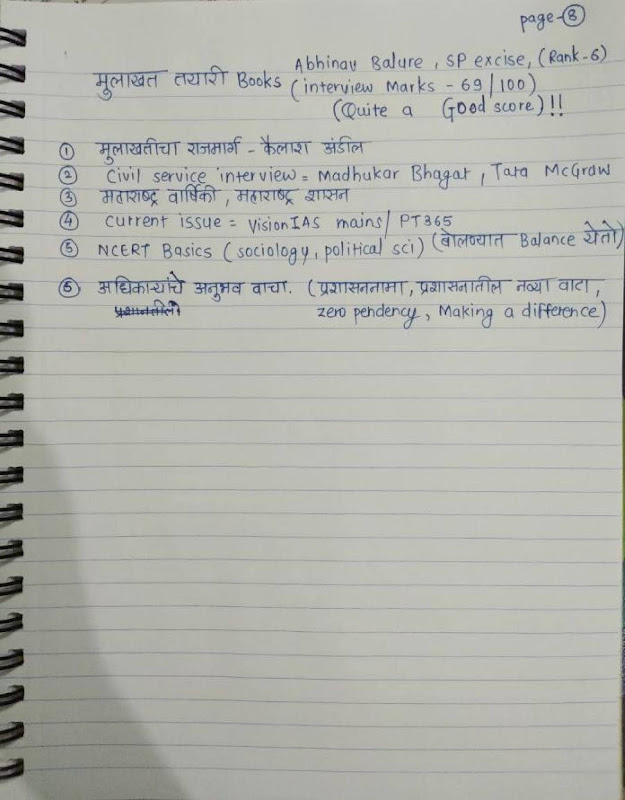 page-8
Abhinav Balure, SP excise, (Rank-6)
मुलाखत तयारी Books (interview Marks - 69/100)
(Quite a Good score)!!
① मुलाखतीचा राजमार्ग - कैलाश अंडील
② Civil service interview = Madhukar Bhagat, Tata McGraw
③ महाराष्ट्र वार्षिकी, महाराष्ट्र शासन
④ Current issue = VisionIAS mains/ PT365
⑤ NCERT Basics (sociology, political sci) (बोलण्यात Balance येतो)
⑥ अधिकाऱ्यांचे अनुभव वाचा. (प्रशासननामा, प्रशासनातील नव्या वाटा,
zero pendency, Making a difference)